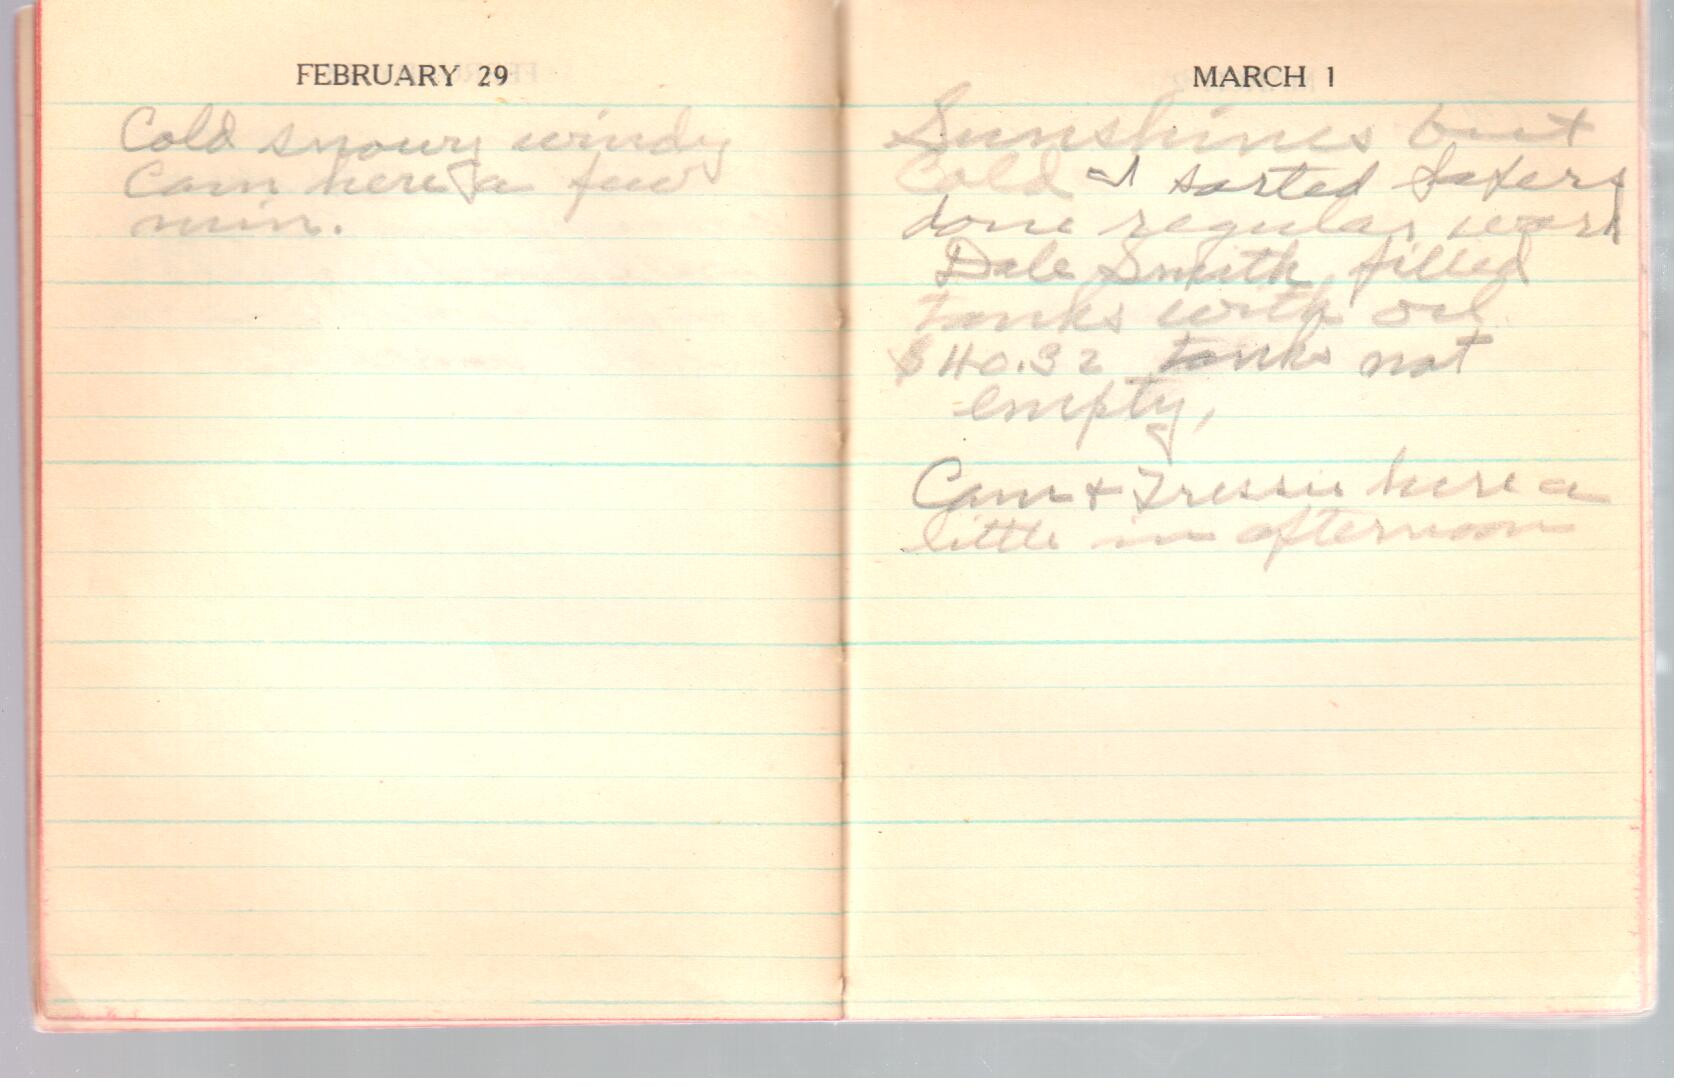 FEBRUARY 29
Cold snowy windy
Cam here a few
min.
MARCH 1
Sunshines but
Cold I sorted papers
done regular work
Dale Smith filled
tanks with oil
$40.32 tanks not
empty,
Cam & Tressie here a
little in afternoon